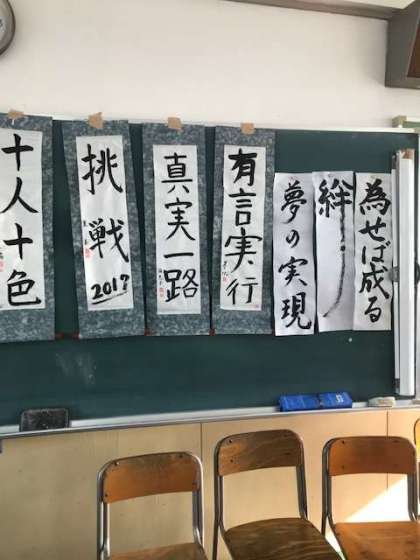 為せば成る
絆
夢の実現
有言実行
真実一路
挑戦
2017
十人十色